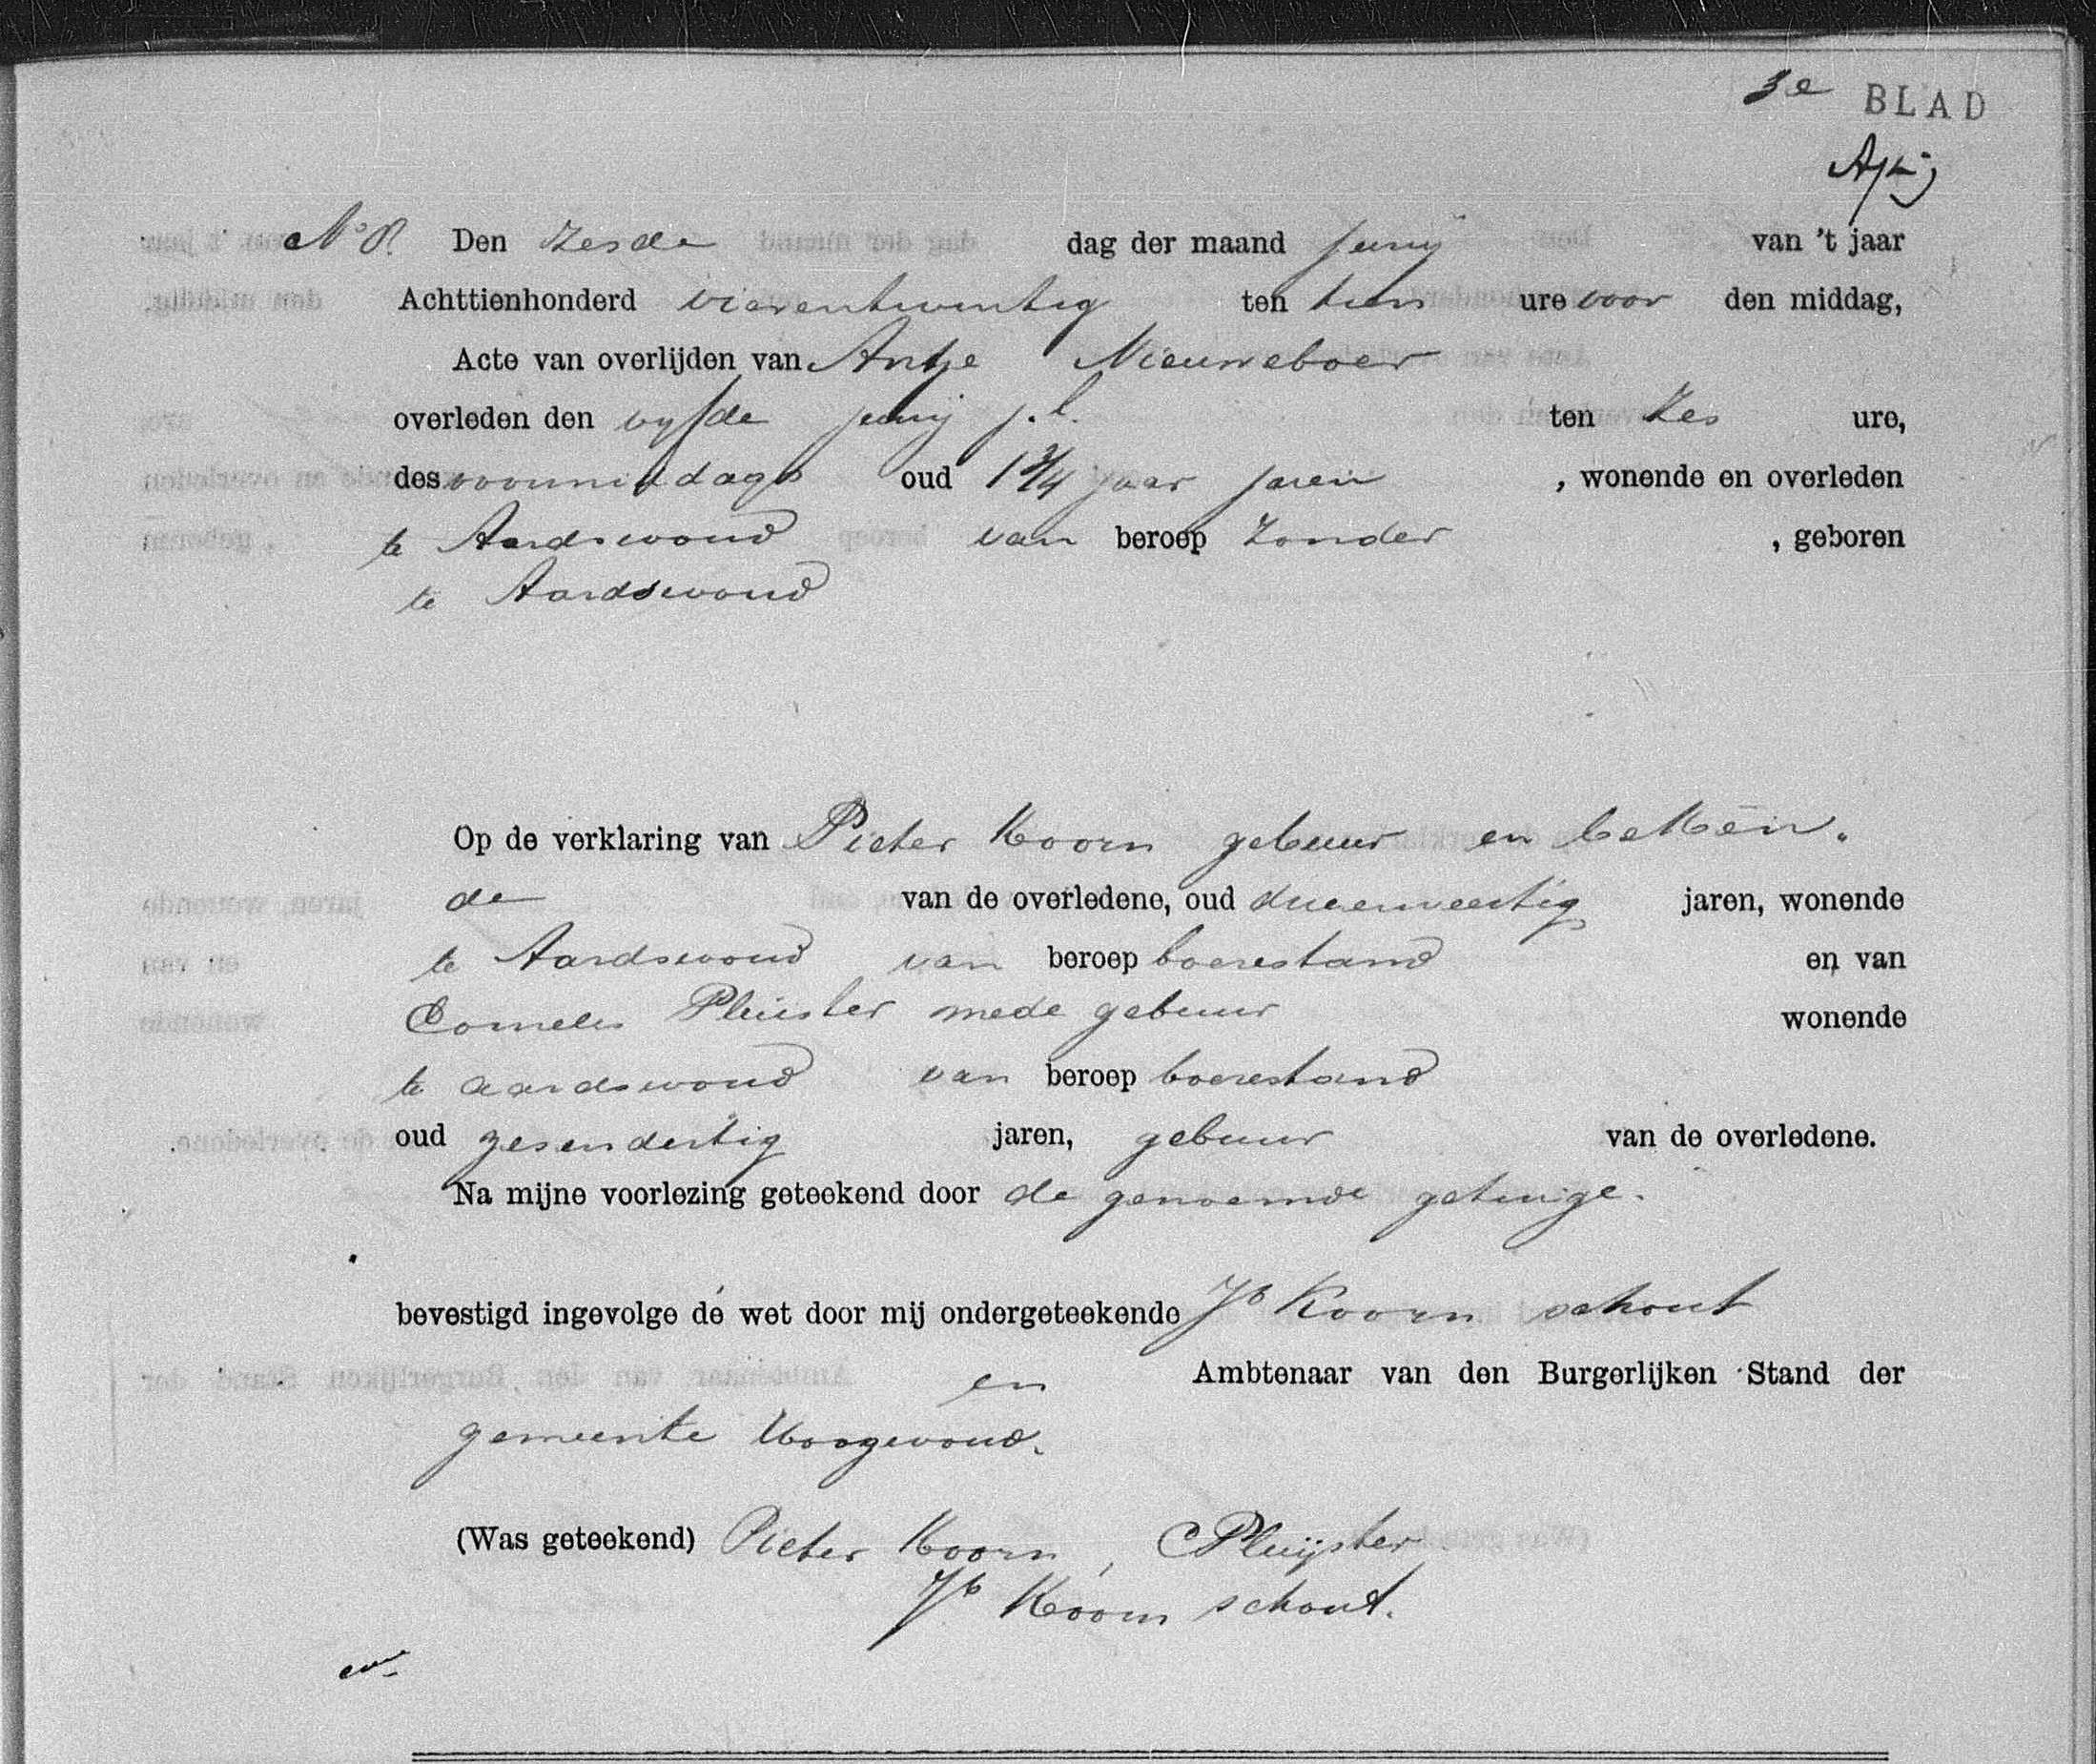 3e BLAD
No 8. Den zesde dag der maand Junij van 't jaar
Achttienhonderd vierentwintig ten tien ure voor den middag,
Acte van overlijden van Antje Nieuweboer
overleden den vyfde junij j.l. ten zes ure,
des voormiddags oud 1 3/4 jaar jaren , wonende en overleden
te Aardswoud van beroep zonder , geboren
te Aardswoud
Op de verklaring van Pieter Koorn gebuur en beken-
de van de overledene, oud jaren, wonende
te Aardswoud van beroep boerestand en van
Cornelis Pluister mede gebuur wonende
te aardswoud van beroep boerestand
oud zesendertig jaren, gebuur van de overledene.
Na mijne voorlezing geteekend door de genoemde getuige.
bevestigd ingevolge de wet door mij ondergeteekende Jb Koorn schout
en Ambtenaar van den Burgerlijken Stand der
gemeente Hoogwoud.
(Was geteekend) Pieter Koorn, C Pluijster
Jb Koorn schout.